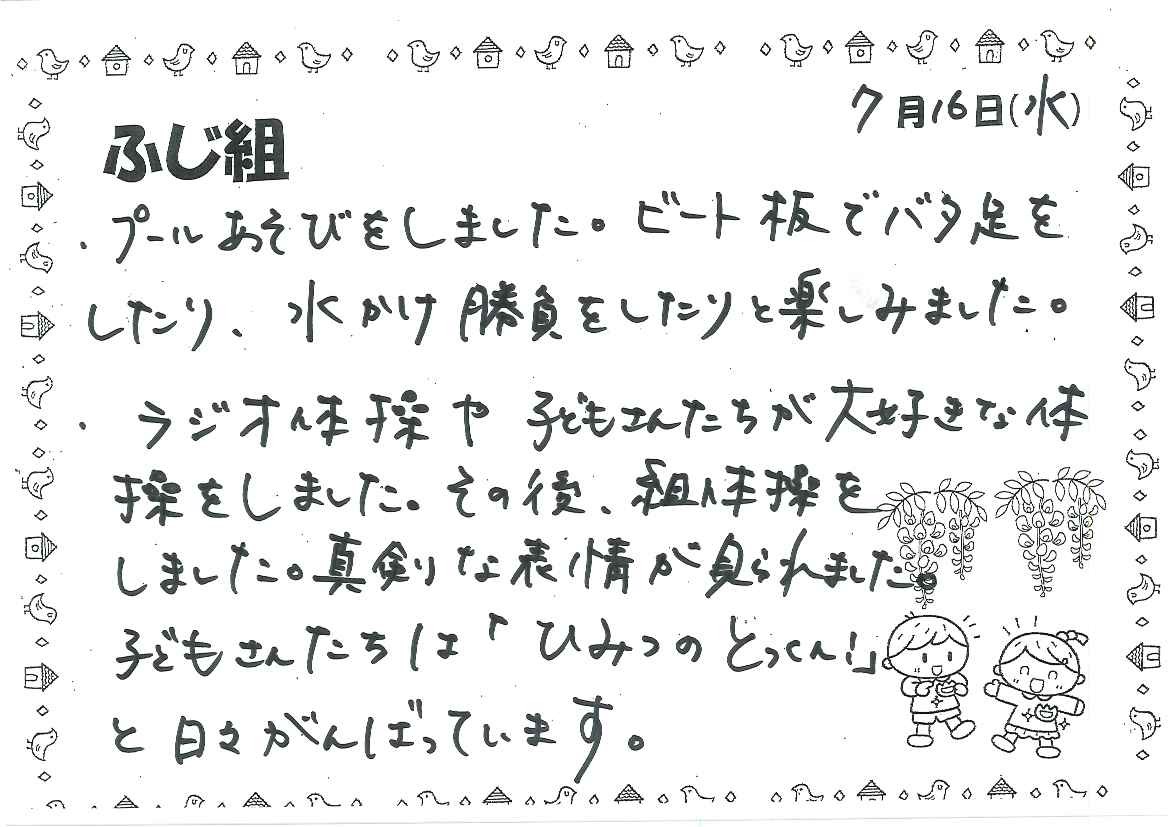 7月16日(水)
ふじ組
・プールあそびをしました。ビート板でバタ足を
したり、水かけ勝負をしたりと楽しみました。
・ラジオ体操や子どもさんたちが大好きな体
操をしました。その後、組体操を
しました。真剣な表情が見られました。
子どもさんたちは「ひみつのとっくん!」
と日々がんばっています。